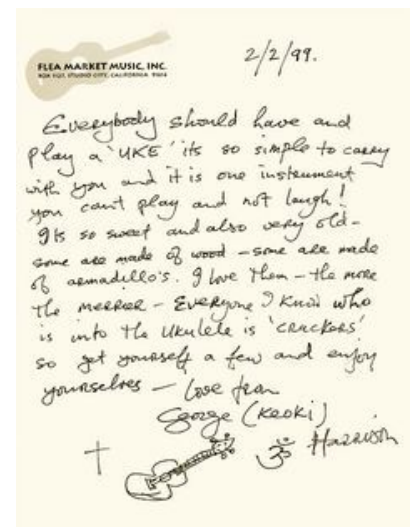 FLEA MARKET MUSIC, INC.
BOX 1127, STUDIO CITY, CALIFORNIA 91614
2/2/99.
Everybody should have and
play a 'UKE' its so simple to carry
with you and it is one instrument
you can't play and not laugh!
Its so sweet and also very old-
some are made of wood - some are made
of armadillo's. I love them - the more
the merrier - Everyone I know who
is into the ukulele is 'crackers'
so get yourself a few and enjoy
yourselves - Love from
George (Keoki)
ॐ Harrison